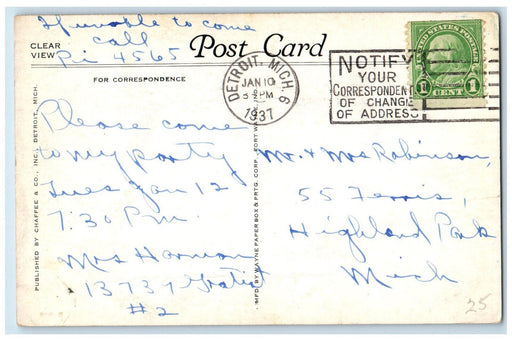 If unable to come
call
Pi 4565
CLEAR
VIEW
Post Card
FOR CORRESPONDENCE
DETROIT, MICH. 6
JAN 10
PM
1937
NOTIFY
YOUR
CORRESPONDENTS
OF CHANGE
OF ADDRESS
UNITED STATES POSTAGE
1 CENT 1
Please come
to my party
Tues Jan 12
7:30 P.M.
Mrs Harmon
13737 Gratiot
#2
Mr. & Mrs Robinson,
55 Ferris,
Highland Park
Mich
25
PUBLISHED BY CHAFFEE & CO., INC., DETROIT, MICH.
MF'D BY WAYNE PAPER BOX & PRTG. CORP., FORT WAYNE, IND.